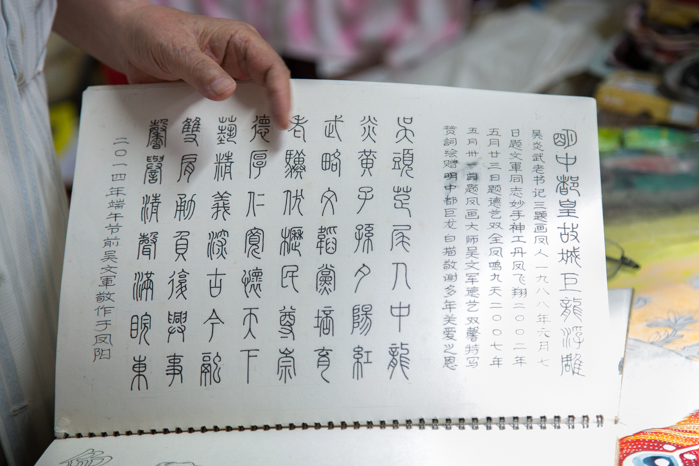 明中都皇故城巨龍浮雕
吴炎武老书记三题画凤人一九八八年六月七
日题文軍同志妙手神工丹凤飞翔二〇〇二年
五月廿三日题德艺双全凤鳴九天二〇〇七年
五月廿日题凤画大师吴文軍德艺双馨特写
赞詞绘赠明中都巨龙白描敬谢多年关爱之恩
吴頭楚尾人中龍
炎黄子孫夕陽紅
武略文韜黨培育
老驥伏櫪民尊崇
德厚仁寬懷天下
藝精義深古今融
雙肩勇負復興事
馨譽清聲滿皖東
二〇一四年端午节前吴文軍敬作于凤阳